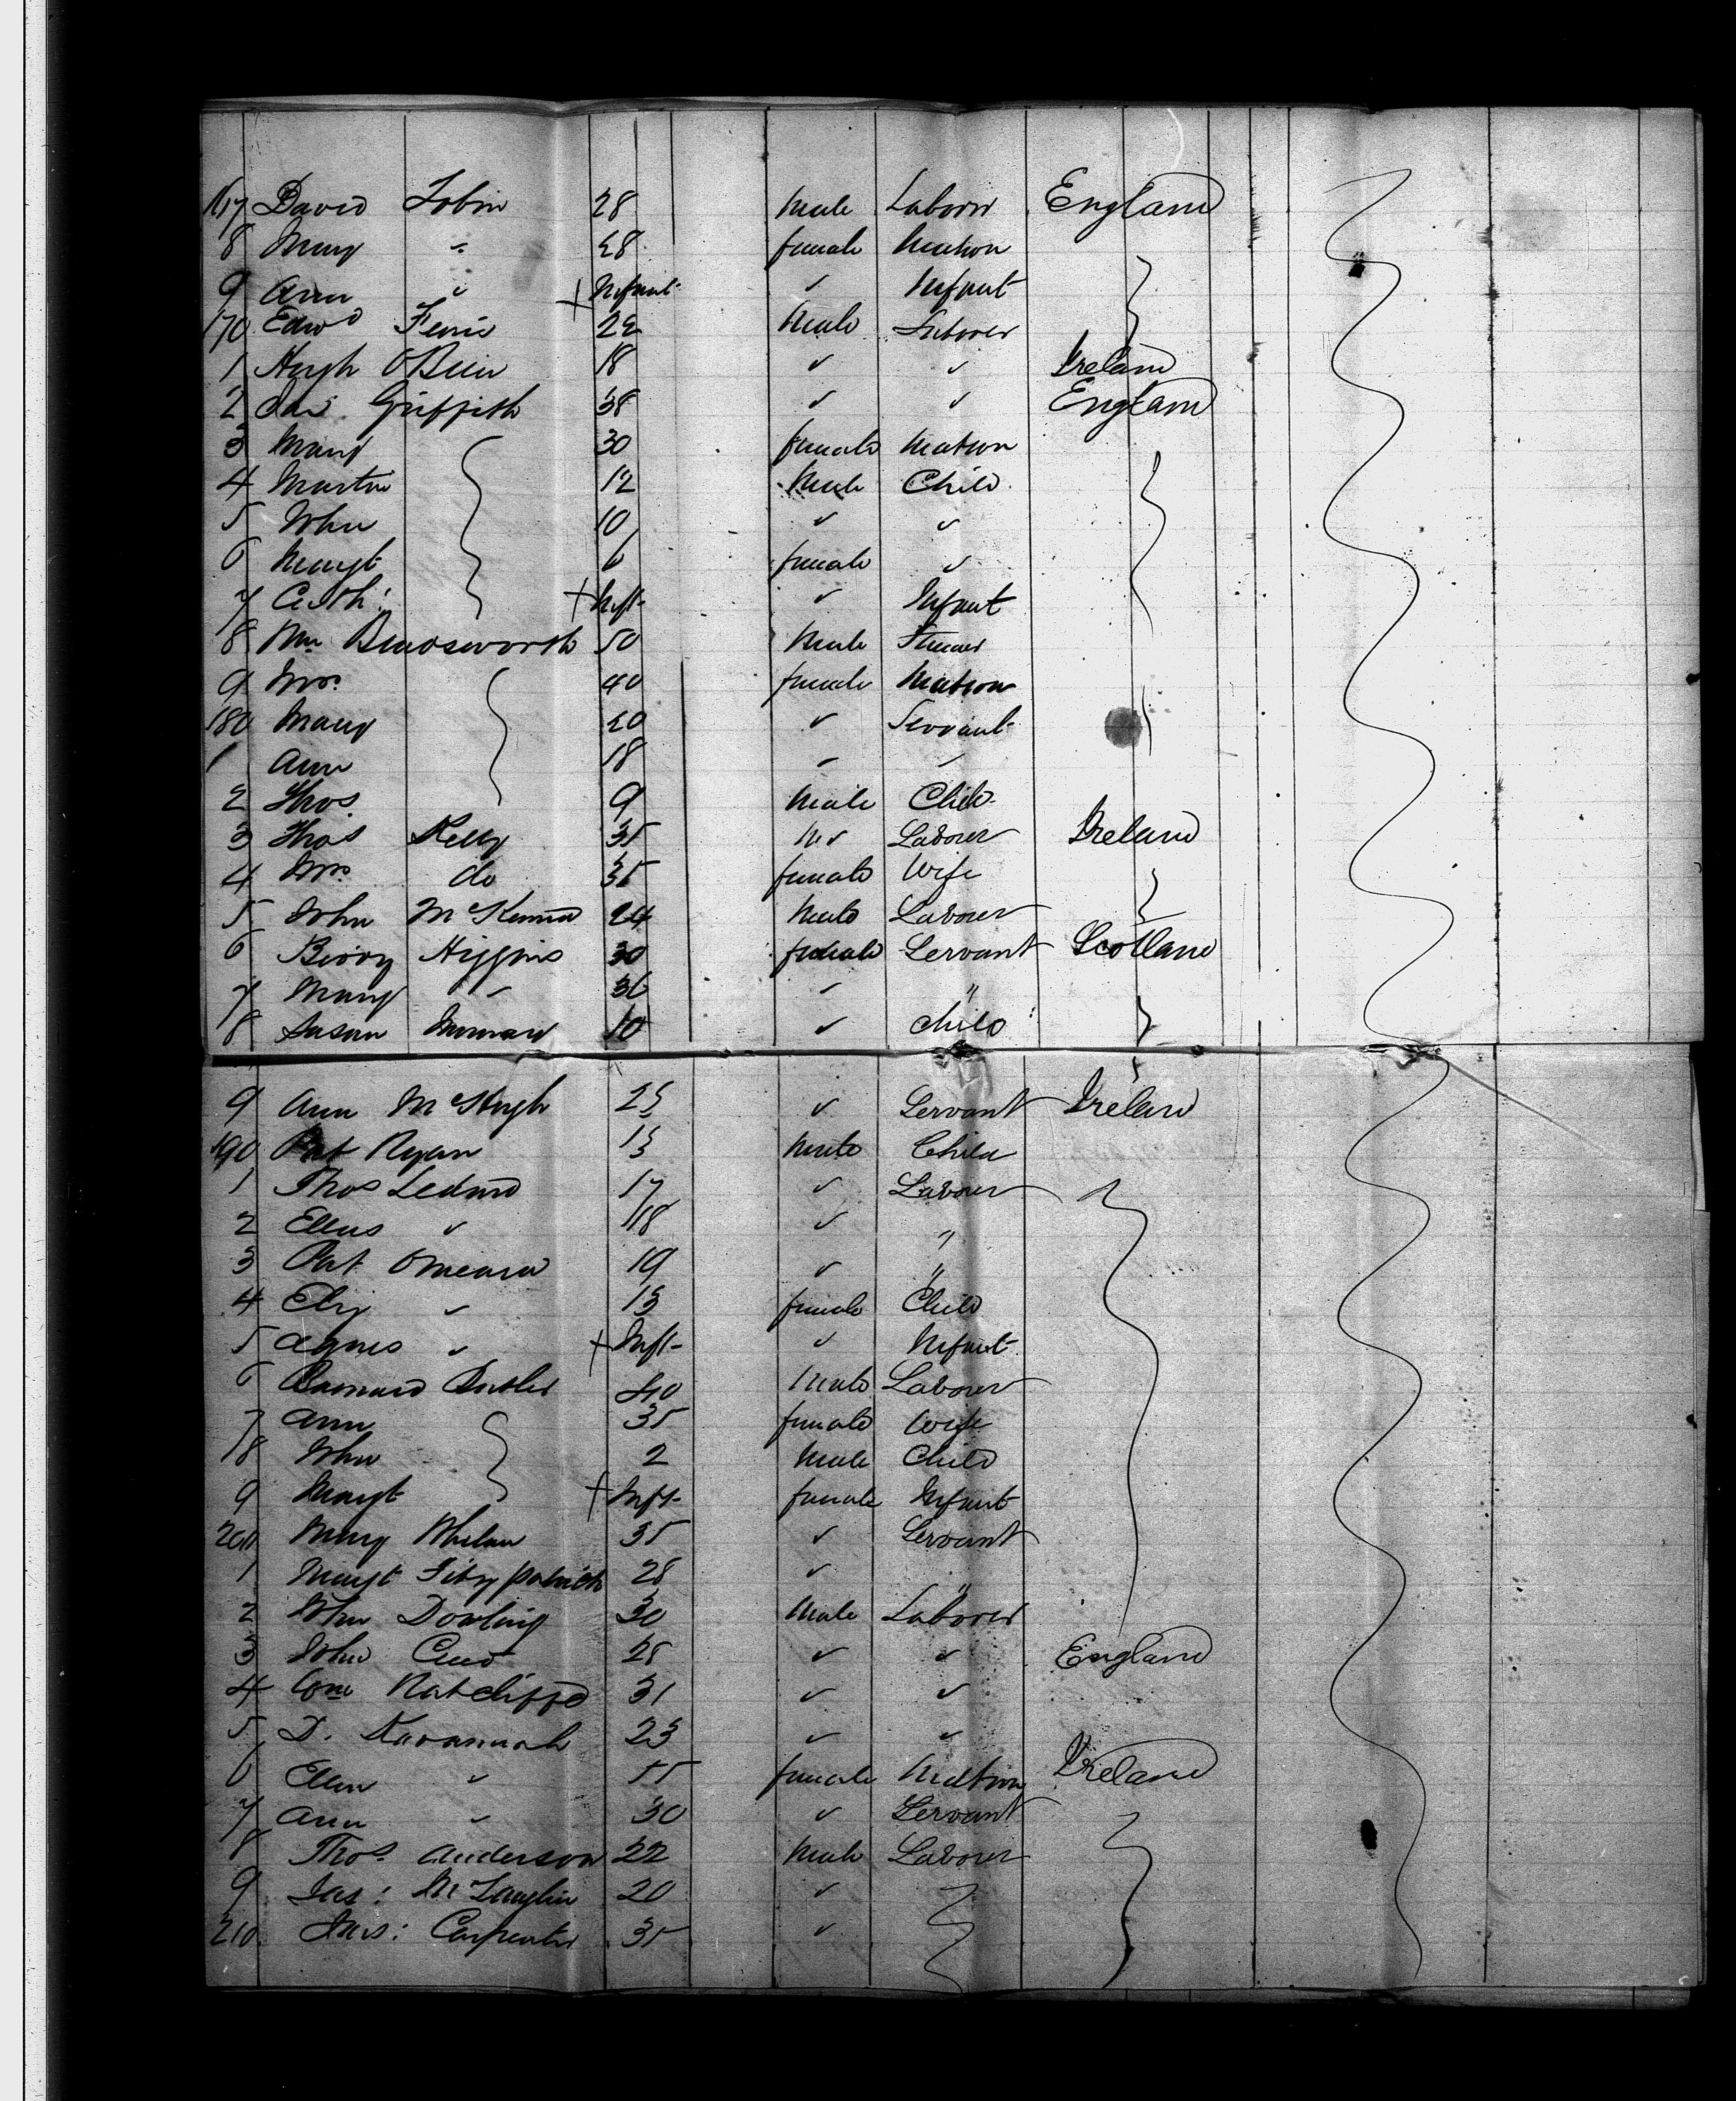 167 David Tobin 28 Male Laborer England
8 Mary " 28 female Matron
9 Ann " + Infant " Infant
170 Edwd 22 Male Laborer
1 Hugh OBrien 18 " " Ireland
2 Griffith 38 " " England
3 Mary 30 female Matron
4 Martin 12 Male Child
5 John 10 " "
6 Margt 6 female "
7 Cath: + Inft " Infant
8 Wm 50 Male
9 Mrs. 40 female Matron
180 Mary 20 " Servant
1 Ann 18 " "
2 Thos. 9 Male Child
3 Thos Kelly 35 " Laborer Ireland
4 Mrs. do 35 female Wife
5 John McKenna 24 Male Laborer
6 Biddy Higgins 30 female Servant Scotland
7 Mary " 36 " "
8 Susan 10 " Child
9 Ann McHugh 25 " Servant Ireland
190 Pat Ryan 13 Male Child
1 Thos 17 " Laborer
2 " 18 " "
3 Pat Omeara 19 " "
4 Eliz " 13 female Child
5 Agnes " + Inft " Infant
6 Barnard Butler 40 Male Laborer
7 Ann 35 female Wife
8 John 2 Male Child
9 Margt + Inft female Infant
200 Mary Whelan 35 " Servant
1 Margt Fitzpatrick 28 " "
2 John Dowling 30 Male Laborer
3 John 28 " " England
4 Ratcliffe 31 " "
5 D. Kavannah 23 " "
6 Ellen " 55 female Matron Ireland
7 Ann " 30 " Servant
8 Thos. Anderson 22 Male Laborer
9 Jas: McLaughlin 20 "
210 Carpenter 35 "